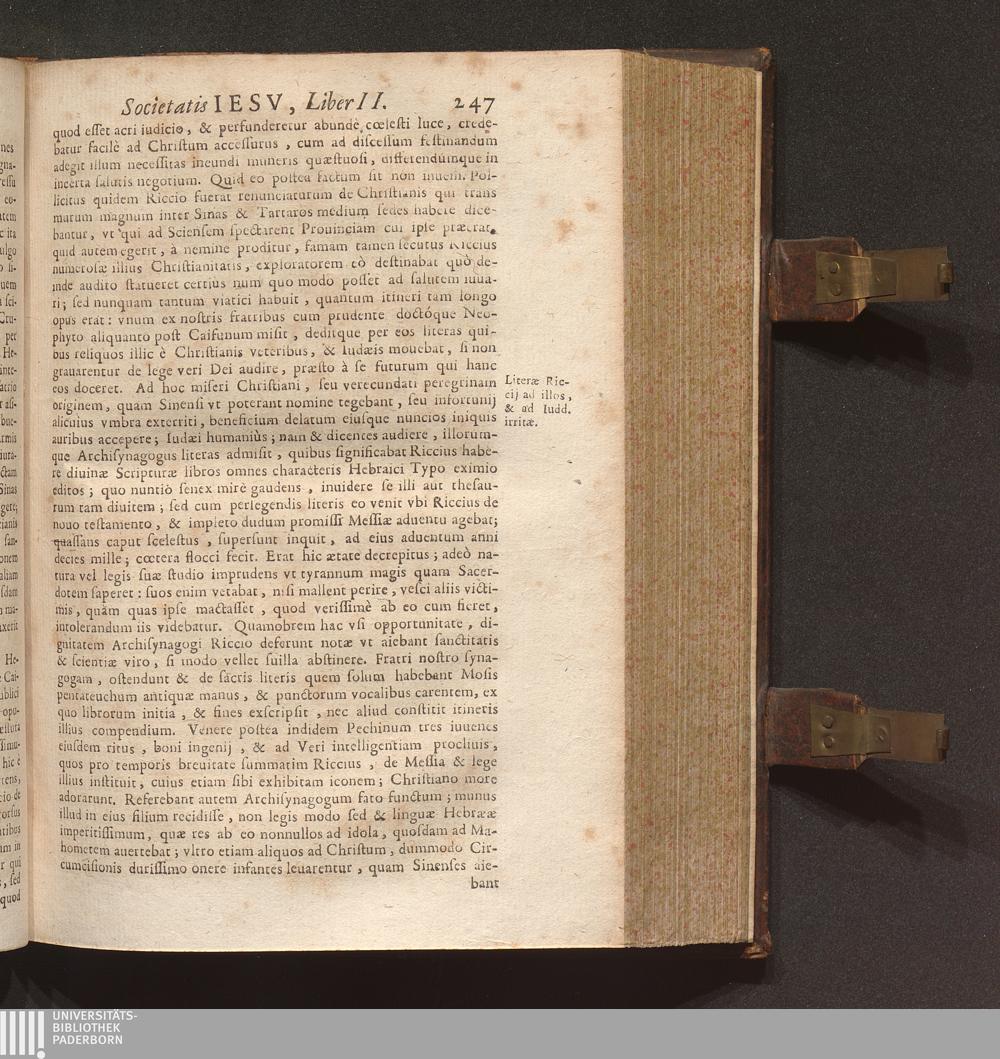 Societatis IESV, Liber II. 247
quod eſſet acri iudicio, & perfunderetur abundè cœleſti luce, crede-
batur facilè ad Chriſtum acceſſurus, cum ad diſceſſum feſtinandum
adegit illum neceſſitas ineundi muneris quæſtuoſi, differendúmque in
incerta ſalutis negotium. Quid eo poſtea factum ſit non inueni. Pol-
licitus quidem Riccio fuerat renunciaturum de Chriſtianis qui trans
murum magnum inter Sinas & Tartaros medium ſedes habere dice-
bantur, vt qui ad Scienſem ſpectarent Prouinciam cui ipſe præerat,
quid autem egerit, à nemine proditur, famam tamen ſecutus Riccius
numeroſæ illius Chriſtianitatis, exploratorem eò deſtinabat quò de-
inde audito ſtatueret certius num quo modo poſſet ad ſalutem iuua-
ri; ſed nunquam tantum viatici habuit, quantum itineri tam longo
opus erat: vnum ex noſtris fratribus cum prudente doctóque Neo-
phyto aliquanto poſt Caifunum miſit, deditque per eos literas qui-
bus reliquos illic è Chriſtianis veteribus, & Iudæis mouebat, ſi non
grauarentur de lege veri Dei audire, præſto à ſe futurum qui hanc
eos doceret. Ad hoc miſeri Chriſtiani, ſeu verecundati peregrinam
originem, quam Sinenſi vt poterant nomine tegebant, ſeu infortunij
alicuius vmbra exterriti, beneficium delatum eiuſque nuncios iniquis
auribus accepere; Iudæi humaniùs; nam & dicentes audiere, illorum-
que Archiſynagogus literas admiſit, quibus ſignificabat Riccius habe-
re diuinæ Scripturæ libros omnes characteris Hebraici Typo eximio
editos; quo nuntiò ſenex mirè gaudens, inuidere ſe illi aut theſau-
rum tam diuitem; ſed cum perlegendis literis eo venit vbi Riccius de
nouo teſtamento, & impleto dudum promiſſi Meſſiæ aduentu agebat;
quaſſans caput ſceleſtus, ſuperſunt inquit, ad eius aduentum anni
decies mille; cœtera flocci fecit. Erat hic ætate decrepitus; adeò na-
tura vel legis ſuæ ſtudio imprudens vt tyrannum magis quam Sacer-
dotem ſaperet: ſuos enim vetabat, niſi mallent perire, veſci aliis victi-
mis, quàm quas ipſe mactaſſet, quod veriſſimè ab eo cum fieret,
intolerandum iis videbatur. Quamobrem hac vſi opportunitate, di-
gnitatem Archiſynagogi Riccio deferunt notæ vt aiebant ſanctitatis
& ſcientiæ viro, ſi modo vellet ſuilla abſtinere. Fratri noſtro ſyna-
gogam, oſtendunt & de ſacris literis quem ſolum habebant Moſis
pentateuchum antiquæ manus, & punctorum vocalibus carentem, ex
quo librorum initia, & fines exſcripſit, nec aliud conſtitit itineris
illius compendium. Venere poſtea indidem Pechinum tres iuuenes
eiuſdem ritus, boni ingenij, & ad Veri intelligentiam procliuis,
quos pro temporis breuitate ſummatim Riccius, de Meſſia & lege
illius inſtituit, cuius etiam ſibi exhibitam iconem; Chriſtiano more
adorarunt. Referebant autem Archiſynagogum fato functum; munus
illud in eius filium recidiſſe, non legis modo ſed & linguæ Hebrææ
imperitiſſimum, quæ res ab eo nonnullos ad idola, quoſdam ad Ma-
hometem auertebat; vltro etiam aliquos ad Chriſtum, dummodo Cir-
cumciſionis duriſſimo onere infantes leuarentur, quam Sinenſes aie-
bant
Literæ Ric-
cij ad illos,
& ad Iudd.
irritæ.
UNIVERSITÄTS-
BIBLIOTHEK
PADERBORN